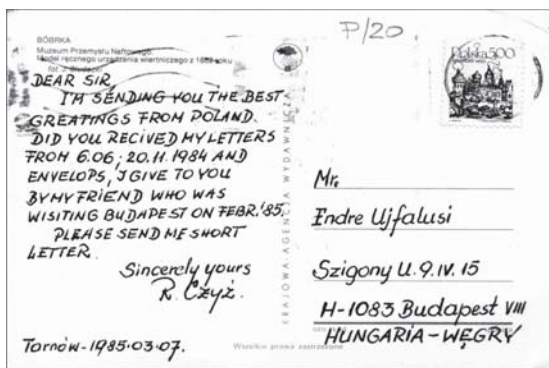 P/20
BÓBRKA
Muzeum Przemysłu Naftowego.
Model ręcznego urządzenia wiertniczego z 1862 roku
fot. J.
Polska 500
DEAR SIR
I'M SENDING YOU THE BEST
GREATINGS FROM POLAND.
DID YOU RECIVED MY LETTERS
FROM 6.06; 20.11.1984 AND
ENVELOPS, I GIVE TO YOU
BY MY FRIEND WHO WAS
WISITING BUDAPEST ON FEBR.'85.
PLEASE SEND ME SHORT
LETTER.
Sincerely yours
R. Czyż.
Tarnów-1985.03.07.
KRAJOWA AGENCJA WYDAWNICZA
Mr.
Endre Ujfalusi
Szigony U. 9. IV. 15
H-1083 Budapest VIII
HUNGARIA-WĘGRY
Wszelkie prawa zastrzeżone